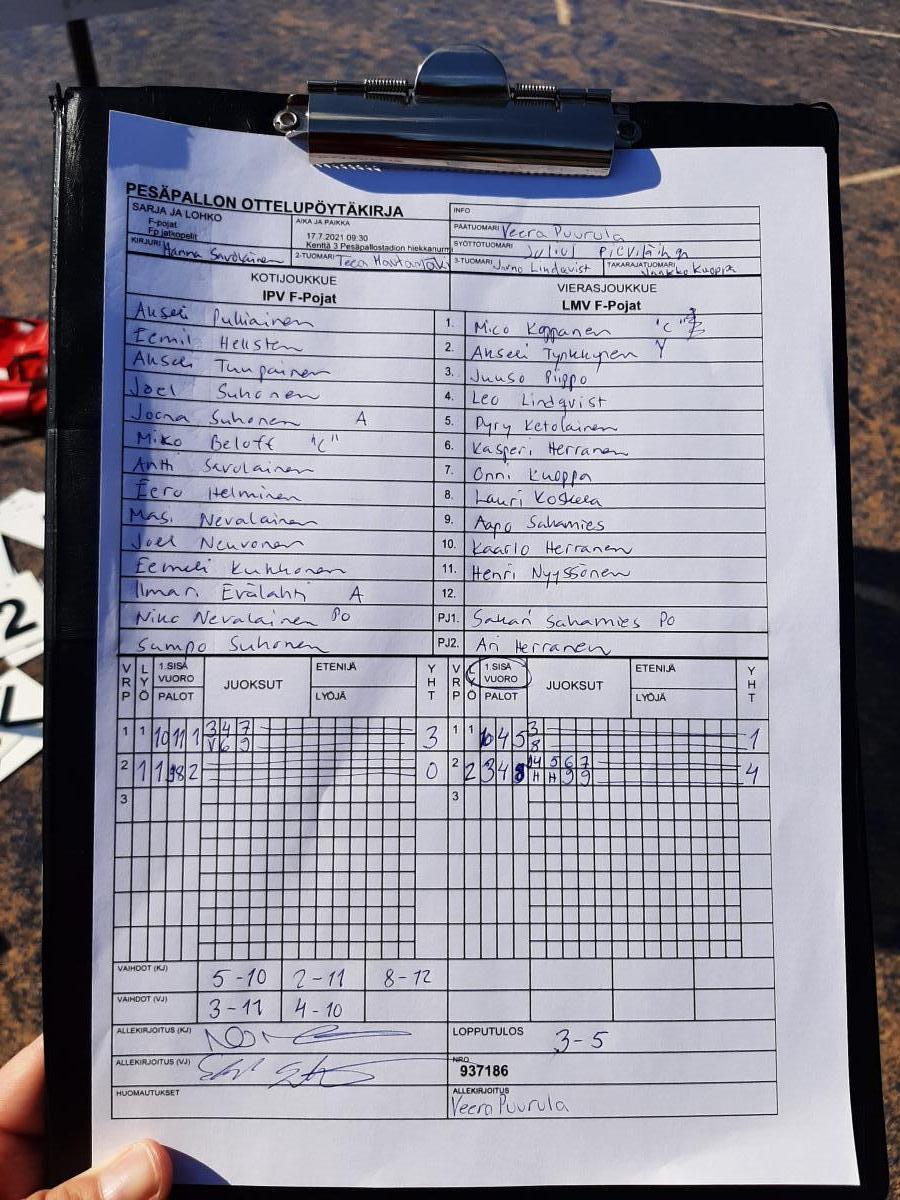 PESÄPALLON OTTELUPÖYTÄKIRJA
SARJA JA LOHKO
F-pojat
Fp jatkopelit
AIKA JA PAIKKA
17.7.2021 09:30
Kenttä 3 Pesäpallostadion hiekkanurmi
INFO
PÄÄTUOMARI Veera Puurula
SYÖTTÖTUOMARI
KIRJURI Hanna Savolainen
2-TUOMARI
3-TUOMARI Jarno Lindqvist
TAKARAJATUOMARI Jaakko Kuoppa
KOTIJOUKKUE
IPV F-Pojat
VIERASJOUKKUE
LMV F-Pojat
Anseli Pulliainen 1. Mico Kopponen "C"
Eemil Hellsten 2. Anseli Tynkkynen
Anseli Tuupainen 3. Juuso Piippo
Joel Suhonen 4. Leo Lindqvist
Joona Suhonen A 5. Pyry Ketolainen
Miko Beloff "C" 6. Kasperi Herranen
Antti Savolainen 7. Onni Kuoppa
Eero Helminen 8. Lauri Koskela
Masi Nevalainen 9. Aapo Sahamies
Joel Neuvonen 10. Kaarlo Herranen
Eemeli Kukkonen 11. Henri Nyyssönen
Ilmari Evälahti A 12.
Niko Nevalainen PO PJ1. Sakari Sahamies PO
Sampo Suhonen PJ2. Ari Herranen
VRP LYÖ 1.SISÄ VUORO PALOT JUOKSUT ETENIJÄ LYÖJÄ YHT
VRP LYÖ 1.SISÄ VUORO PALOT JUOKSUT ETENIJÄ LYÖJÄ YHT
1 1 10 11 1 3 4 7 3
V 6 9
1 1 4 5 3 1
8
2 1 2 0
2 2 3 4 14 5 6 7 4
H H 9 9
3 3
VAIHDOT (KJ) 5-10 2-11 8-12
VAIHDOT (VJ) 3-11 4-10
ALLEKIRJOITUS (KJ)
LOPPUTULOS 3-5
ALLEKIRJOITUS (VJ)
NRO
937186
HUOMAUTUKSET
ALLEKIRJOITUS
Veera Puurula
2